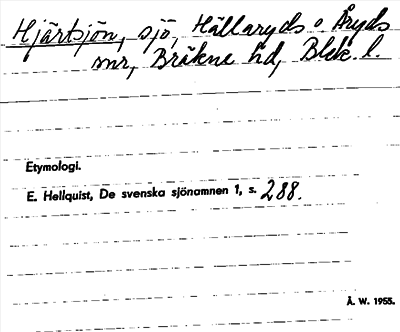 Hjärtsjön, sjö, Hällaryds o Åryds
snr, Bräkne hd, Blek. l.
Etymologi.
E. Hellquist, De svenska sjönamnen 1, s. 288.
Å. W. 1955.